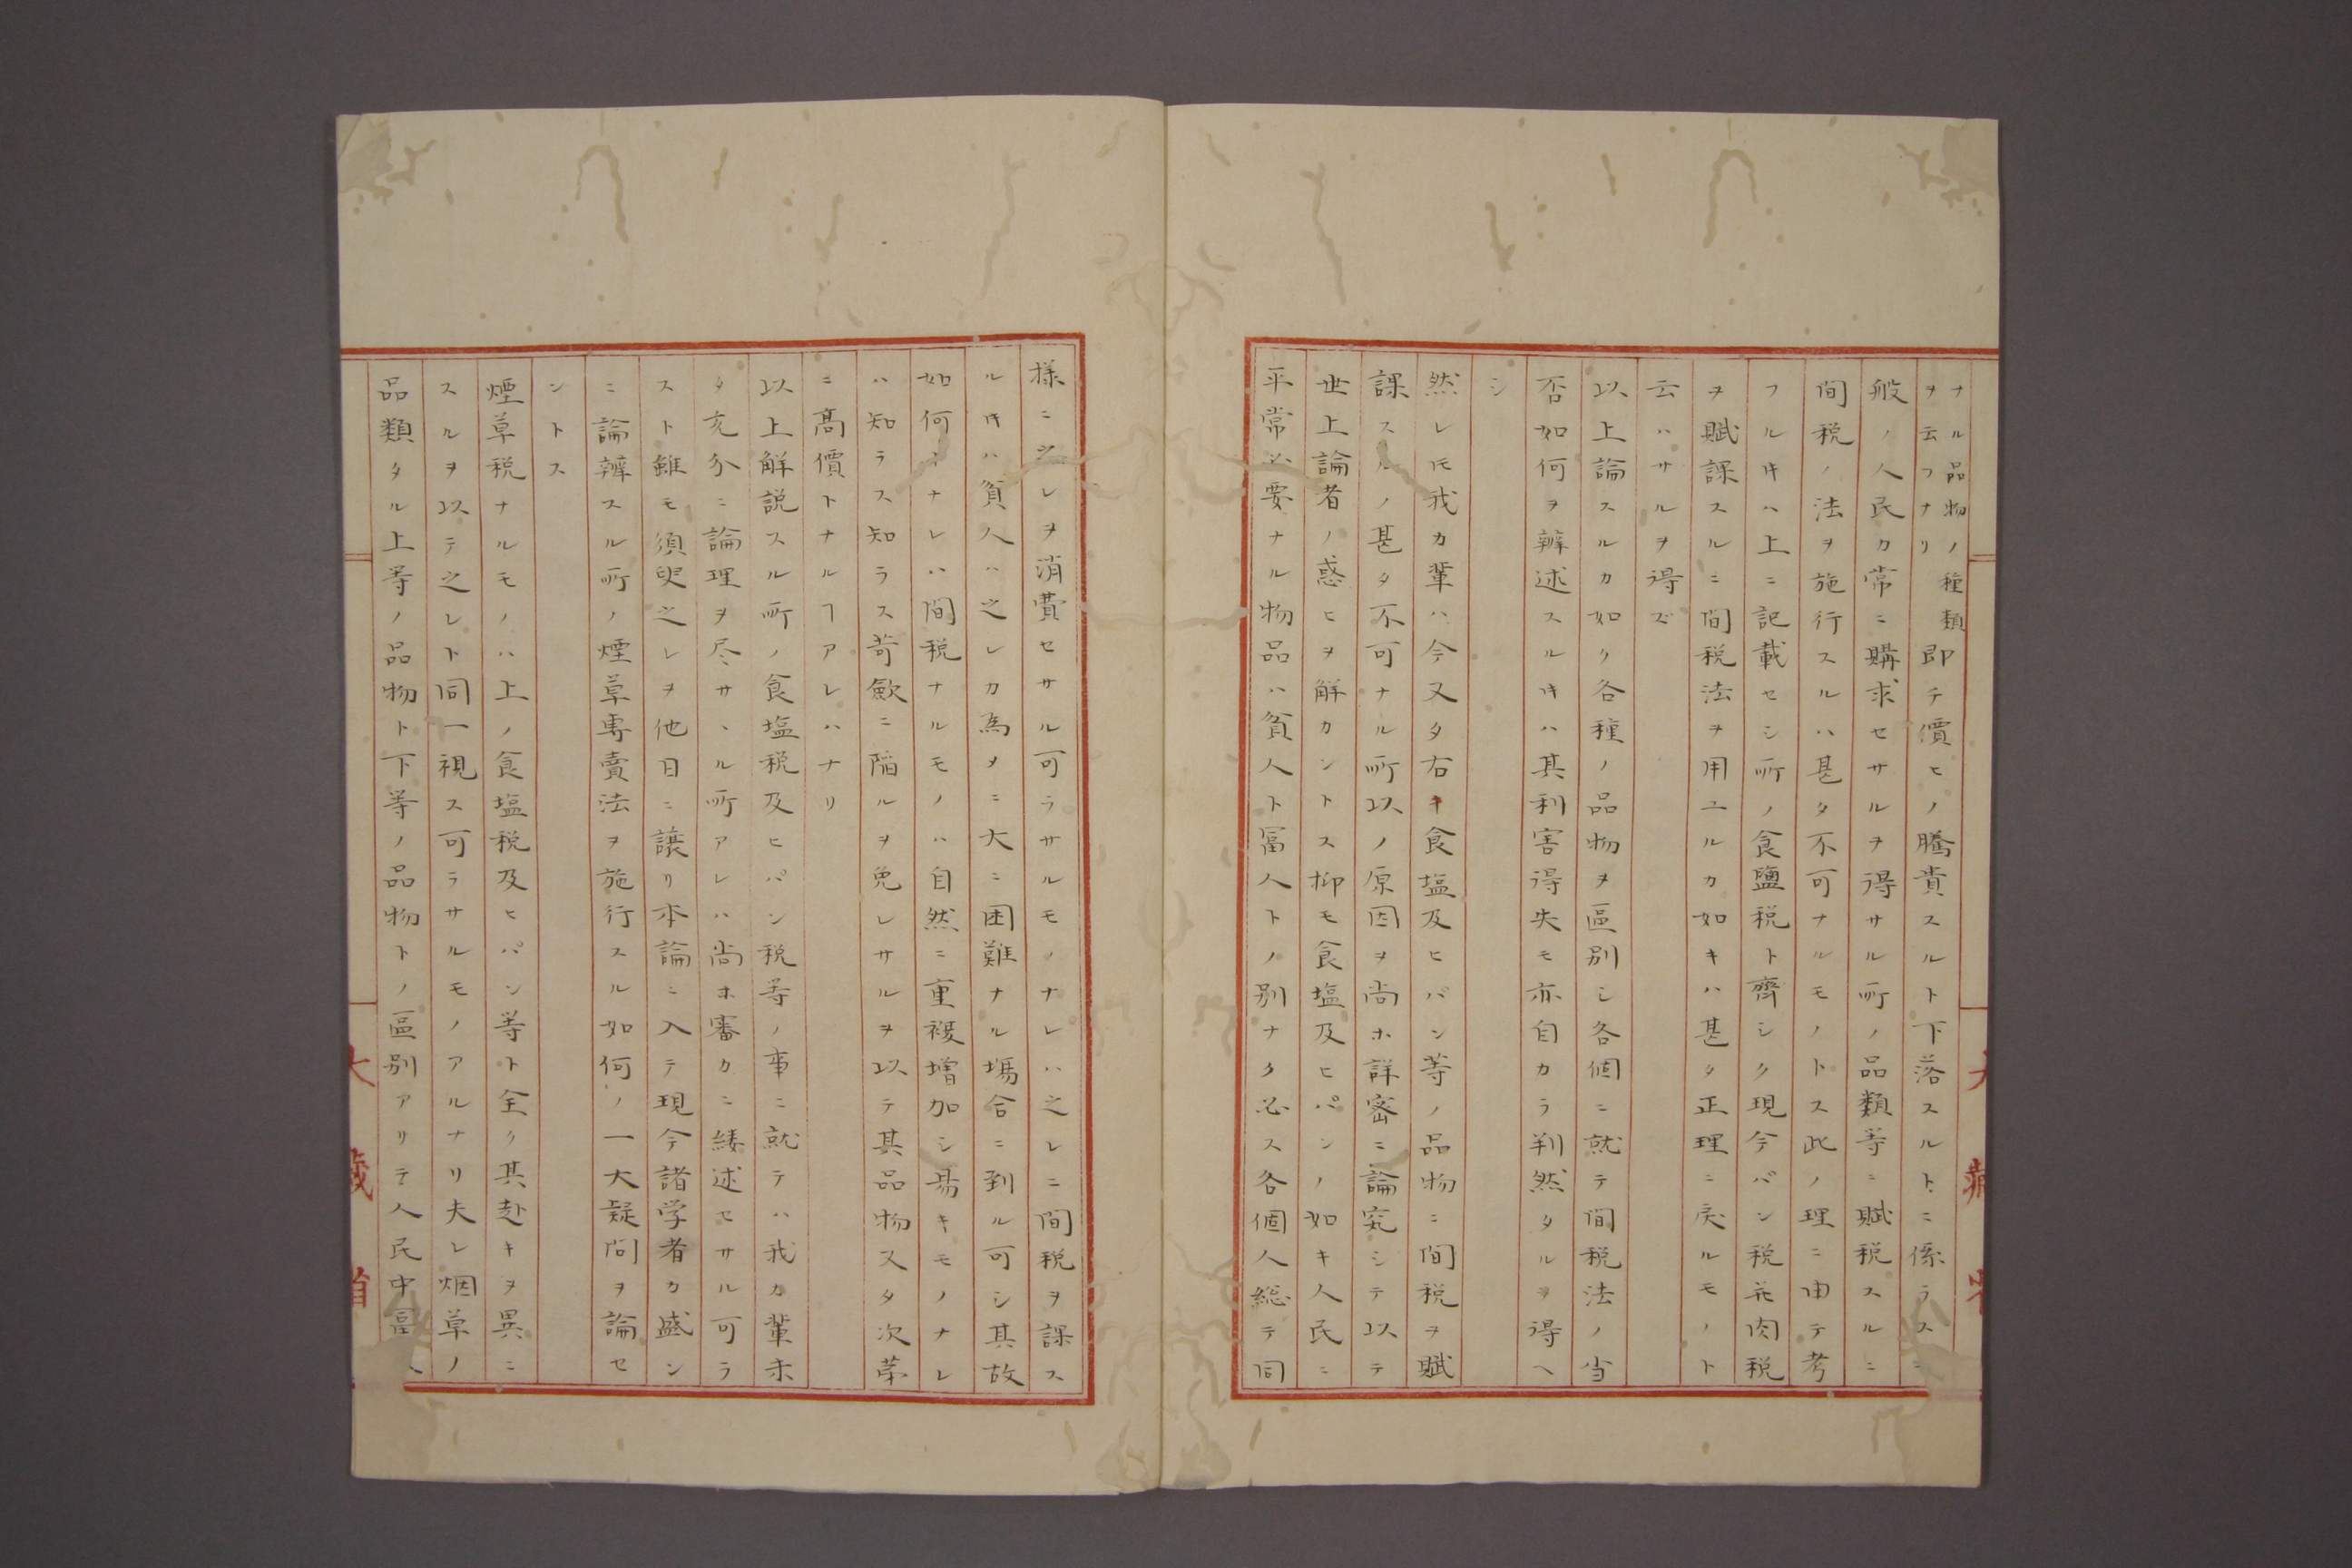 ナル品物ノ種類
ヲ云フナリ
即チ價ヒノ騰貴スルト下落スルトニ係ラス
般ノ人民カ常ニ購求セサルヲ得サル所ノ品類等ニ賦税スルニ
間税ノ法ヲ施行スルハ甚タ不可ナルモノトス此ノ理ニ由テ考
フルキハ上ニ記載セシ所ノ食鹽税ト齊シク現今パン税并肉税
ヲ賦課スルニ間税法ヲ用ユルカ如キハ甚タ正理ニ戻ルモノト
云ハサルヲ得ズ
以上論スルカ如ク各種ノ品物ヲ區別シ各個ニ就テ間税法ノ当
否如何ヲ辨述スルキハ其利害得失モ亦自カラ判然タルヲ得ヘ
シ
然レ𪜈我カ輩ハ今又タ右キ食塩及ヒパン等ノ品物ニ間税ヲ賦
課スルノ甚タ不可ナル所以ノ原因ヲ尚ホ詳密ニ論究シテ以テ
世上論者ノ惑ヒヲ解カントス抑モ食塩及ヒパンノ如キ人民ニ
平常必要ナル物品ハ貧人ト冨人トノ別ナク必ス各個人総テ同
様ニ之レヲ消費セサル可ラサルモノナレハ之レニ間税ヲ課ス
ルキハ貧人ハ之レカ為メニ大ニ困難ナル塲合ニ到ル可シ其故
如何トナレハ間税ナルモノハ自然ニ重複増加シ易キモノナレ
ハ知ラス知ラス苛歛ニ陥ルヲ免レサルヲ以テ其品物又タ次第
ニ高價トナルヿアレハナリ
以上解説スル所ノ食塩税及ヒパン税等ノ事ニ就テハ我カ輩未
タ充分ニ論理ヲ尽サヽル所アレハ尚ホ審カニ縷述セサル可ラ
スト雖モ須臾之レヲ他日ニ譲リ本論ニ入テ現今諸学者カ盛ン
ニ論辨スル所ノ煙草専賣法ヲ施行スル如何ノ一大疑問ヲ論セ
ントス
煙草税ナルモノハ上ノ食塩税及ヒパン等ト全ク其赴キヲ異ニ
スルヲ以テ之レト同一視ス可ラサルモノアルナリ夫レ烟草ノ
品類タル上等ノ品物ト下等ノ品物トノ區別アリテ人民中冨人
大藏省